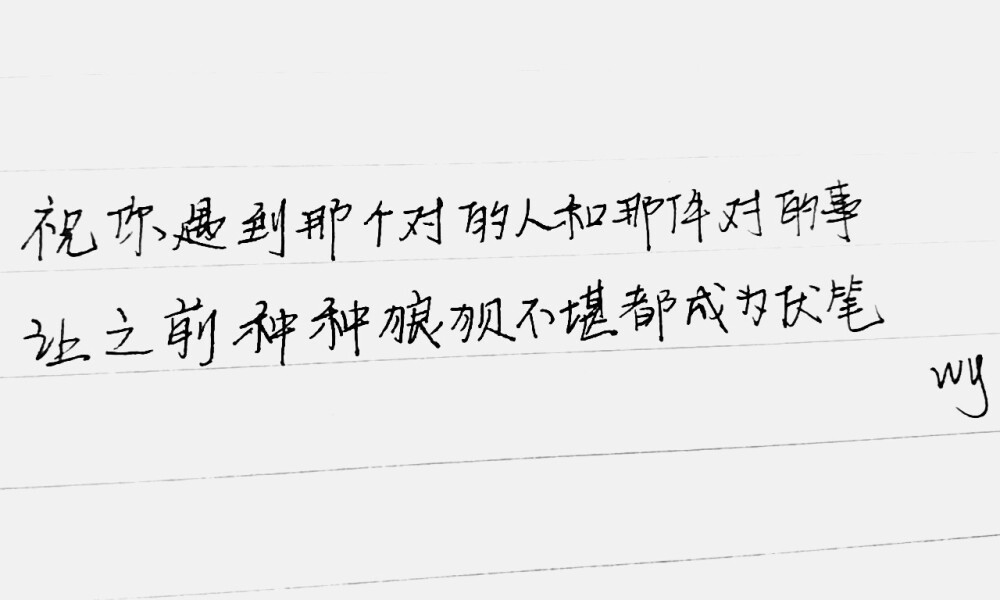 祝你遇到那个对的人和那件对的事
让之前种种狼狈不堪都成为伏笔
wy